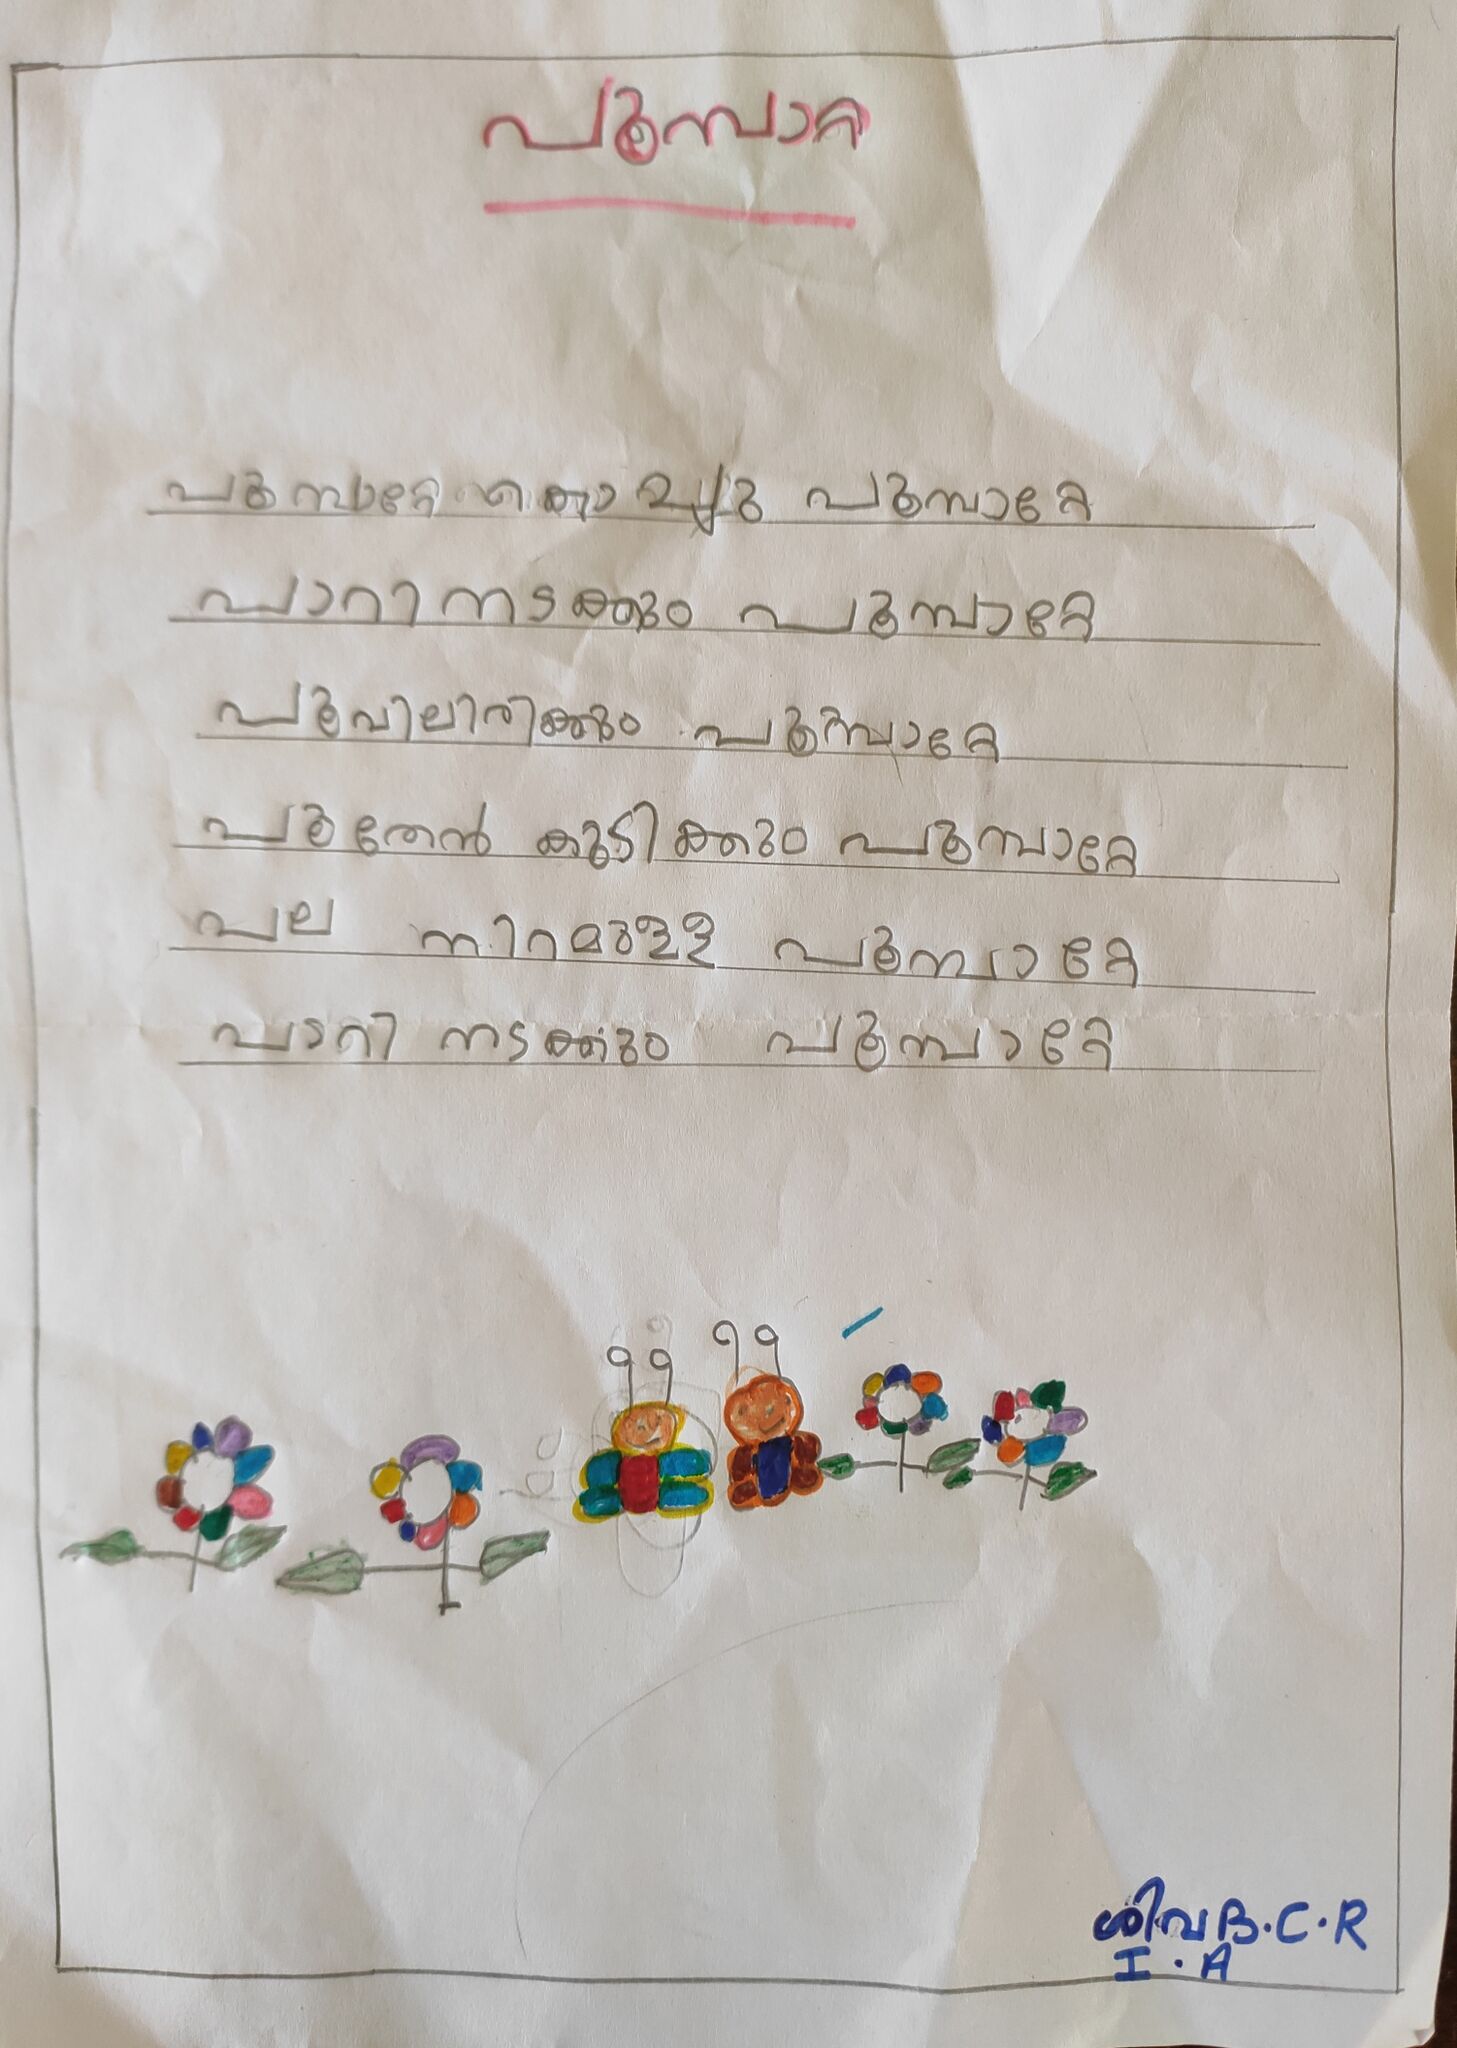 പൂമ്പാറ്റ
പൂമ്പാറ്റേ കൊച്ചു പൂമ്പാറ്റേ
പാറി നടക്കും പൂമ്പാറ്റേ
പൂവിലിരിക്കും പൂമ്പാറ്റേ
പൂതേൻ കുടിക്കും പൂമ്പാറ്റേ
പല നിറമുള്ള പൂമ്പാറ്റേ
പാറി നടക്കും പൂമ്പാറ്റേ
ശിവ B.C.R
I.A